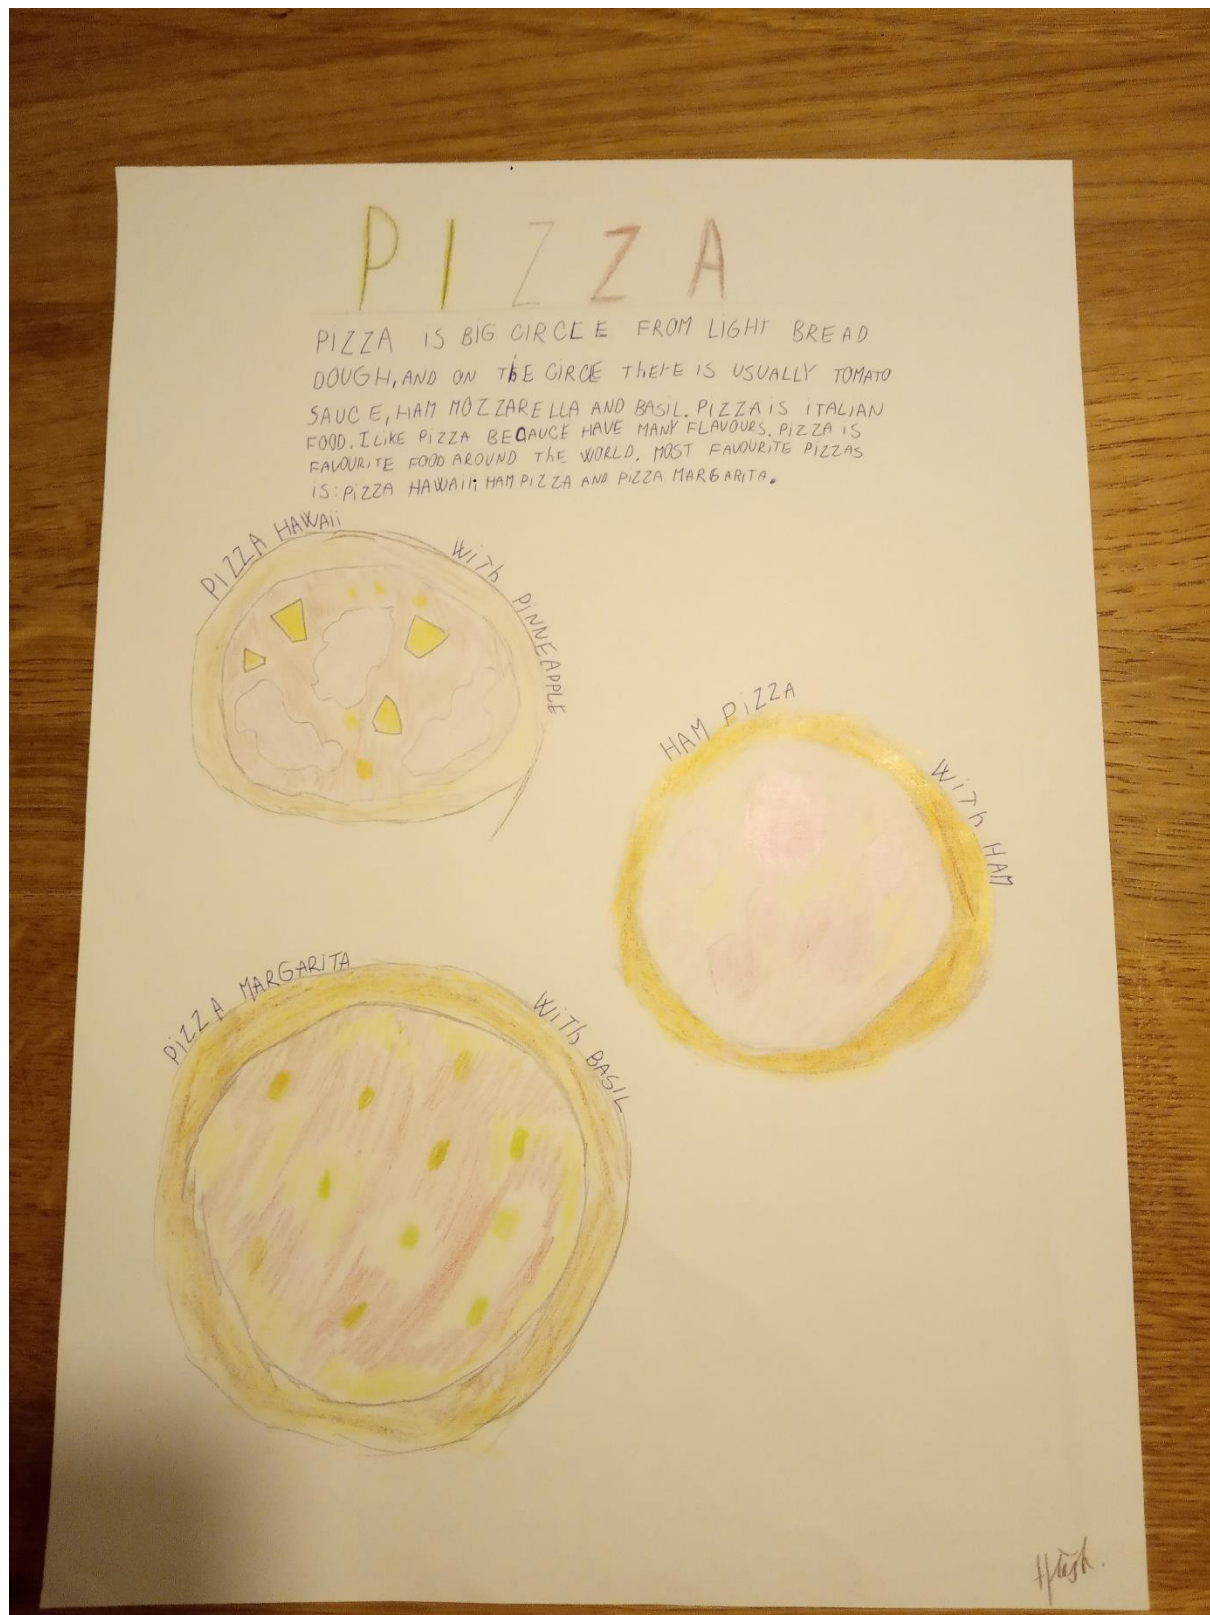 PIZZA
PIZZA iS BiG CIRCLE FROM LIGHT BREAD
DOUGH, AND ON THE CIRCE THERE IS USUALLY TOMATO
SAUCE, HAM MOZZARELLA AND BASIL. PIZZA iS iTALIAN
FOOD. I LIKE PIZZA BECAUCE HAVE MANY FLAVOURS. PiZZA iS
FAVOURITE FOOD AROUND THE WORLD. MOST FAVOURITE PIZZAS
iS: PiZZA HAWAii; HAM PIZZA AND PIZZA MARGARITA.
PIZZA HAWAii WiTh PiNNEAPPLE
HAM PiZZA WiTh HAM
PiZZA MARGARiTA WiTh BASIL